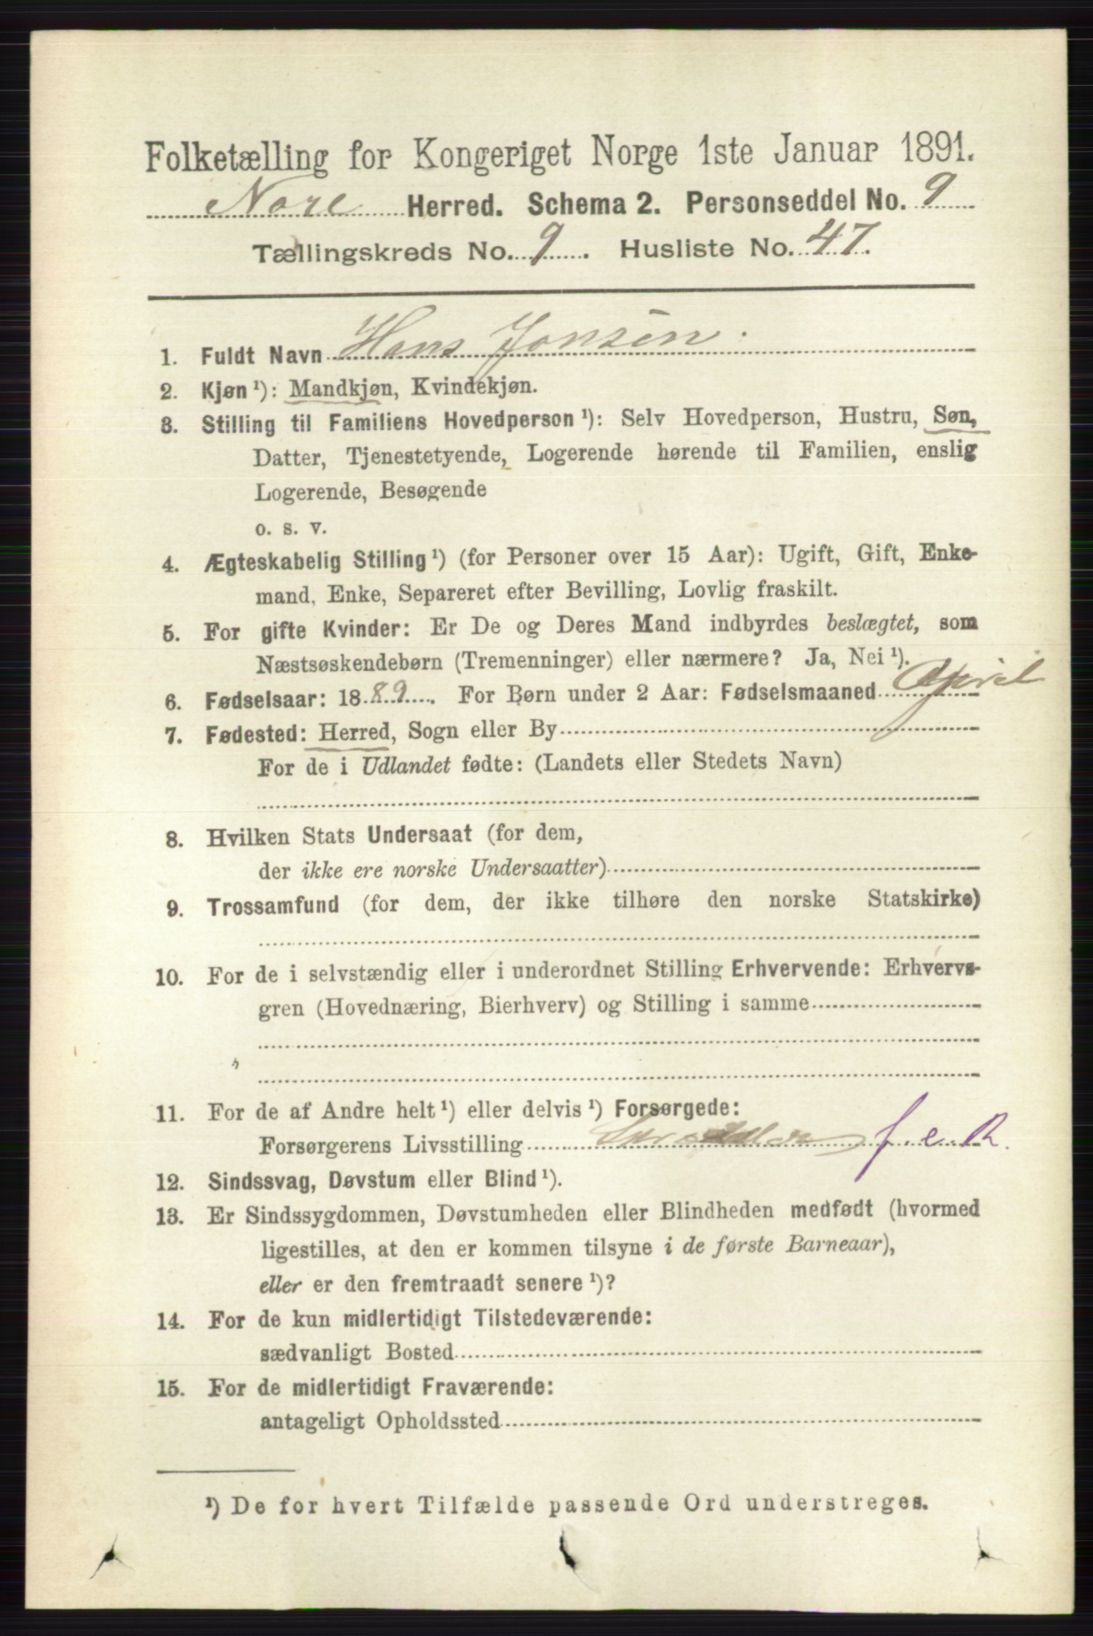 Folketælling for Kongeriget Norge 1ste Januar 1891.
Nore Herred. Schema 2. Personseddel No. 9
Tællingskreds No. 9. Husliste No. 47.
1. Fuldt Navn Hans Jonsen.
2. Kjøn ¹): Mandkjøn, Kvindekjøn.
3. Stilling til Familiens Hovedperson ¹): Selv Hovedperson, Hustru, Søn,
Datter, Tjenestetyende, Logerende hørende til Familien, enslig
Logerende, Besøgende
o. s. v.
4. Ægteskabelig Stilling ¹) (for Personer over 15 Aar): Ugift, Gift, Enke-
mand, Enke, Separeret efter Bevilling, Lovlig fraskilt.
5. For gifte Kvinder: Er De og Deres Mand indbyrdes beslægtet, som
Næstsøskendebørn (Tremenninger) eller nærmere? Ja, Nei ¹).
6. Fødselsaar: 1889. For Børn under 2 Aar: Fødselsmaaned April
7. Fødested: Herred, Sogn eller By
For de i Udlandet fødte: (Landets eller Stedets Navn)
8. Hvilken Stats Undersaat (for dem,
der ikke ere norske Undersaatter)
9. Trossamfund (for dem, der ikke tilhøre den norske Statskirke)
10. For de i selvstændig eller i underordnet Stilling Erhvervende: Erhvervs-
gren (Hovednæring, Bierhverv) og Stilling i samme
11. For de af Andre helt ¹) eller delvis ¹) Forsørgede:
Forsørgerens Livsstilling f. e. R.
12. Sindssvag, Døvstum eller Blind ¹).
13. Er Sindssygdommen, Døvstumheden eller Blindheden medfødt (hvormed
ligestilles, at den er kommen tilsyne i de første Barneaar),
eller er den fremtraadt senere ¹)?
14. For de kun midlertidigt Tilstedeværende:
sædvanligt Bosted
15. For de midlertidigt Fraværende:
antageligt Opholdssted
¹) De for hvert Tilfælde passende Ord understreges.